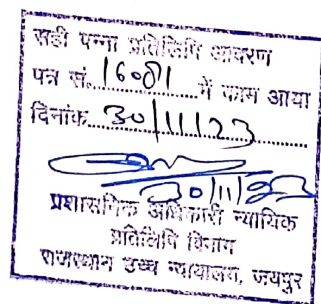 सही पन्ना प्रतिलिपि आवरण
पत्र सं. 16081 में काम आया
दिनांक 30/11/23
30/11/23
प्रशासनिक अधिकारी न्यायिक
प्रतिलिपि विभाग
राजस्थान उच्च न्यायालय, जयपुर